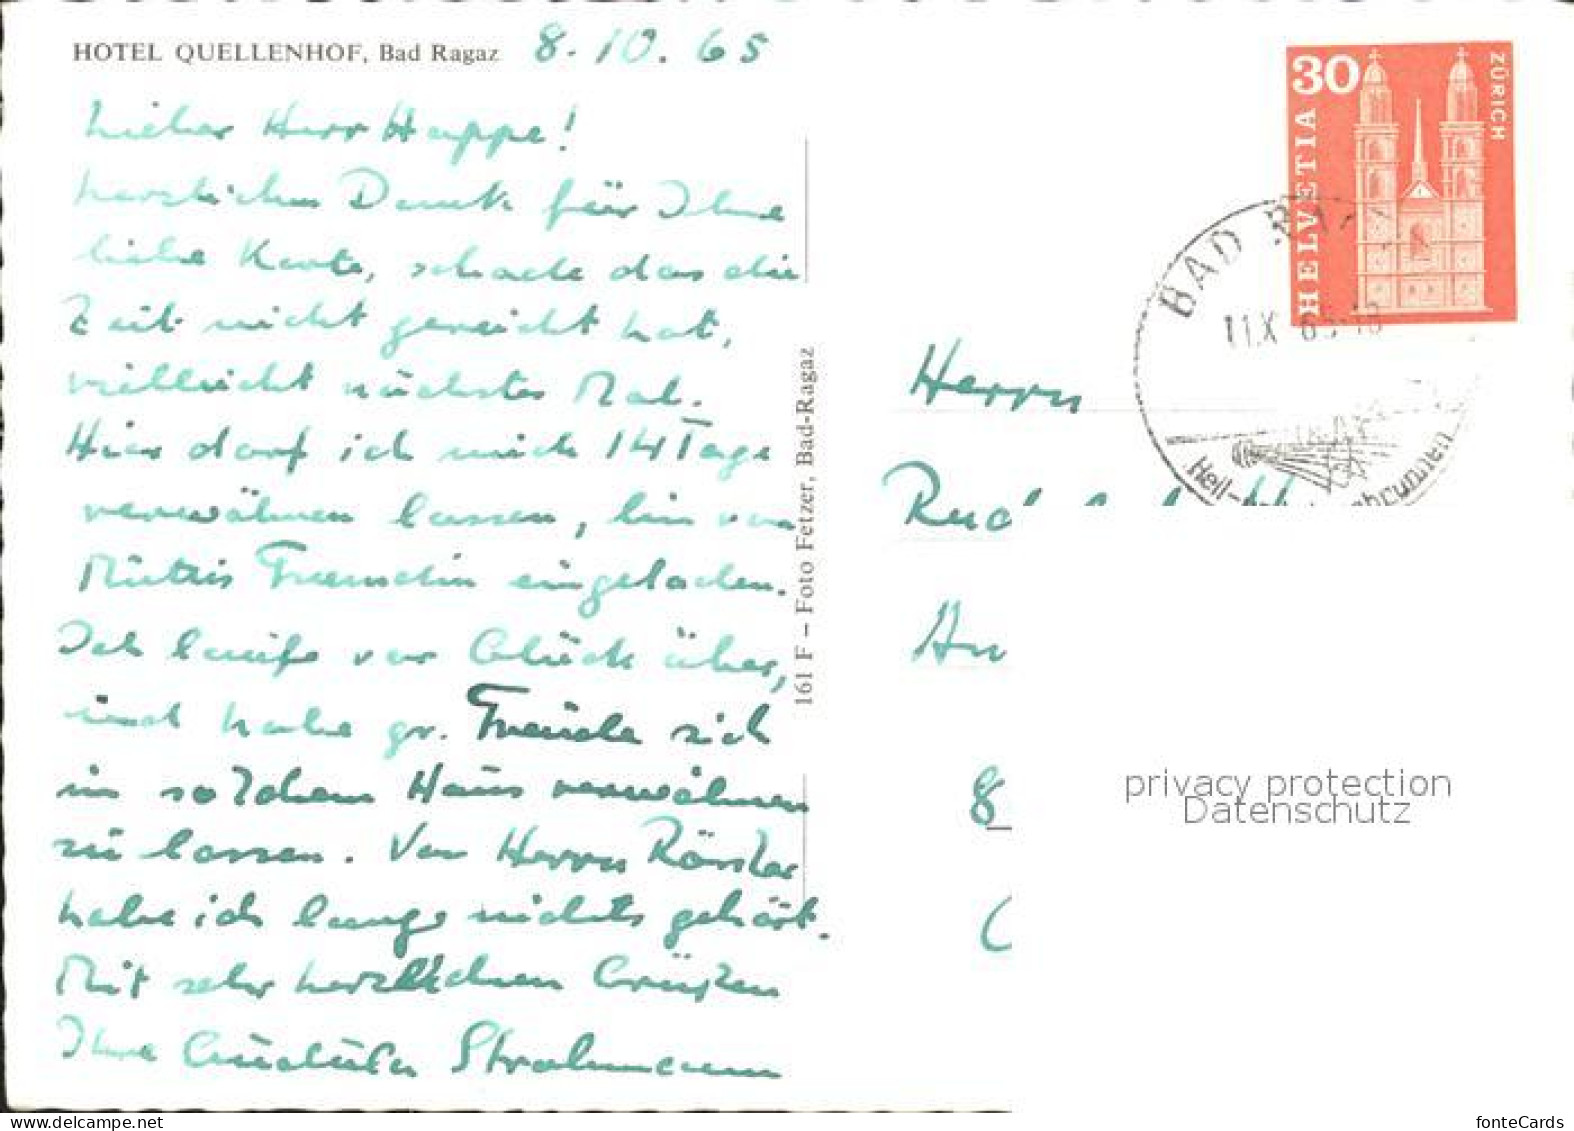 HOTEL QUELLENHOF, Bad Ragaz 8.10.65
Lieber Herr Happe!
herzlichen Dank für Ihre
liebe Karte, schade das die
Zeit nicht gereicht hat,
vielleicht nächstes Mal.
Hier darf ich mich 14 Tage
verwöhnen lassen, bin von
Mutris Freundin eingeladen.
Ich laufe vor Glück über,
und habe gr. Freude sich
in solchem Haus verwöhnen
zu lassen. Von Herrn
habe ich lange nichts gehört.
Mit sehr herzlichen Grüßen
Ihre Strahmann
161 F – Foto Fetzer, Bad-Ragaz
30
HELVETIA
ZÜRICH
BAD
11.X 65-18
Heil-
Herrn
privacy protection
Datenschutz
www.delcampe.net
fonteCards